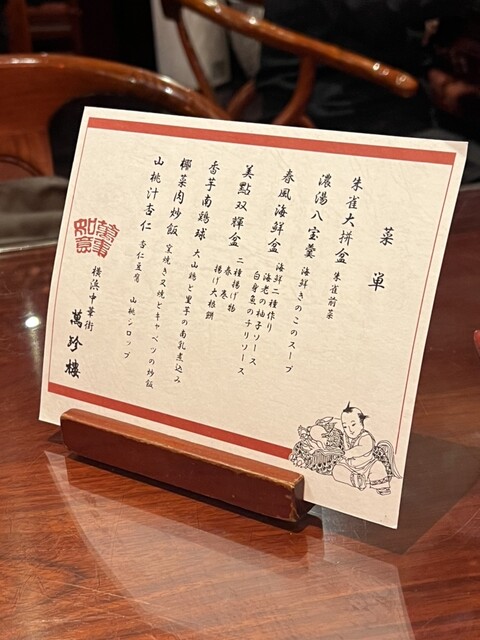 菜単
朱雀大拼盆 朱雀前菜
濃湯八宝羹 海鮮きのこのスープ
春風海鮮盆 海鮮二種作り
海老の柚子ソース
白身魚のチリソース
美點双輝盆 二種揚げ物
春巻
揚げ大根餅
香芋南鶏球 大山鶏と里芋の南乳煮込み
椰菜肉炒飯 窯焼き叉焼とキャベツの炒飯
山桃汁杏仁 杏仁豆腐 山桃シロップ
横浜中華街 萬珍樓
萬事如意